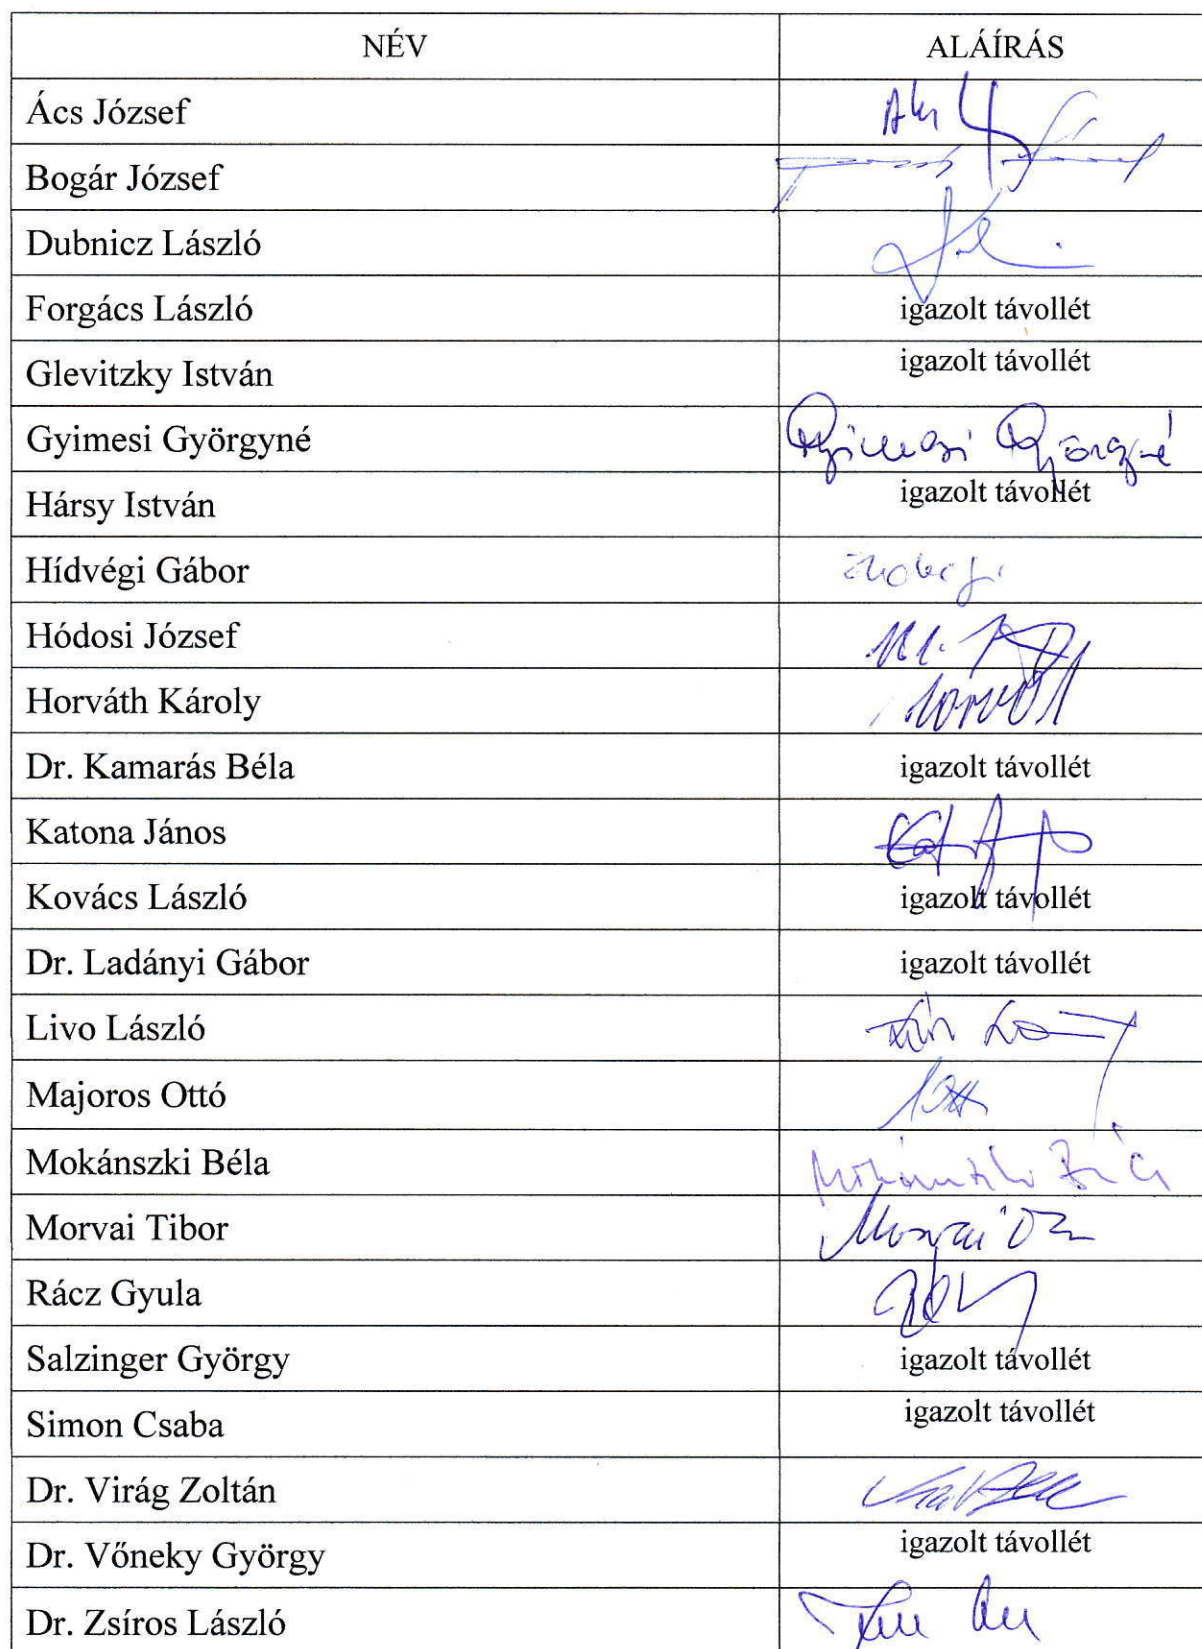 NÉV ALÁÍRÁS
Ács József
Bogár József
Dubnicz László
Forgács László igazolt távollét
Glevitzky István igazolt távollét
Gyimesi Györgyné Gyimesi Györgyné
Hársy István igazolt távollét
Hídvégi Gábor
Hódosi József
Horváth Károly
Dr. Kamarás Béla igazolt távollét
Katona János
Kovács László igazolt távollét
Dr. Ladányi Gábor igazolt távollét
Livo László
Majoros Ottó
Mokánszki Béla
Morvai Tibor Morvai
Rácz Gyula
Salzinger György igazolt távollét
Simon Csaba igazolt távollét
Dr. Virág Zoltán
Dr. Vőneky György igazolt távollét
Dr. Zsíros László